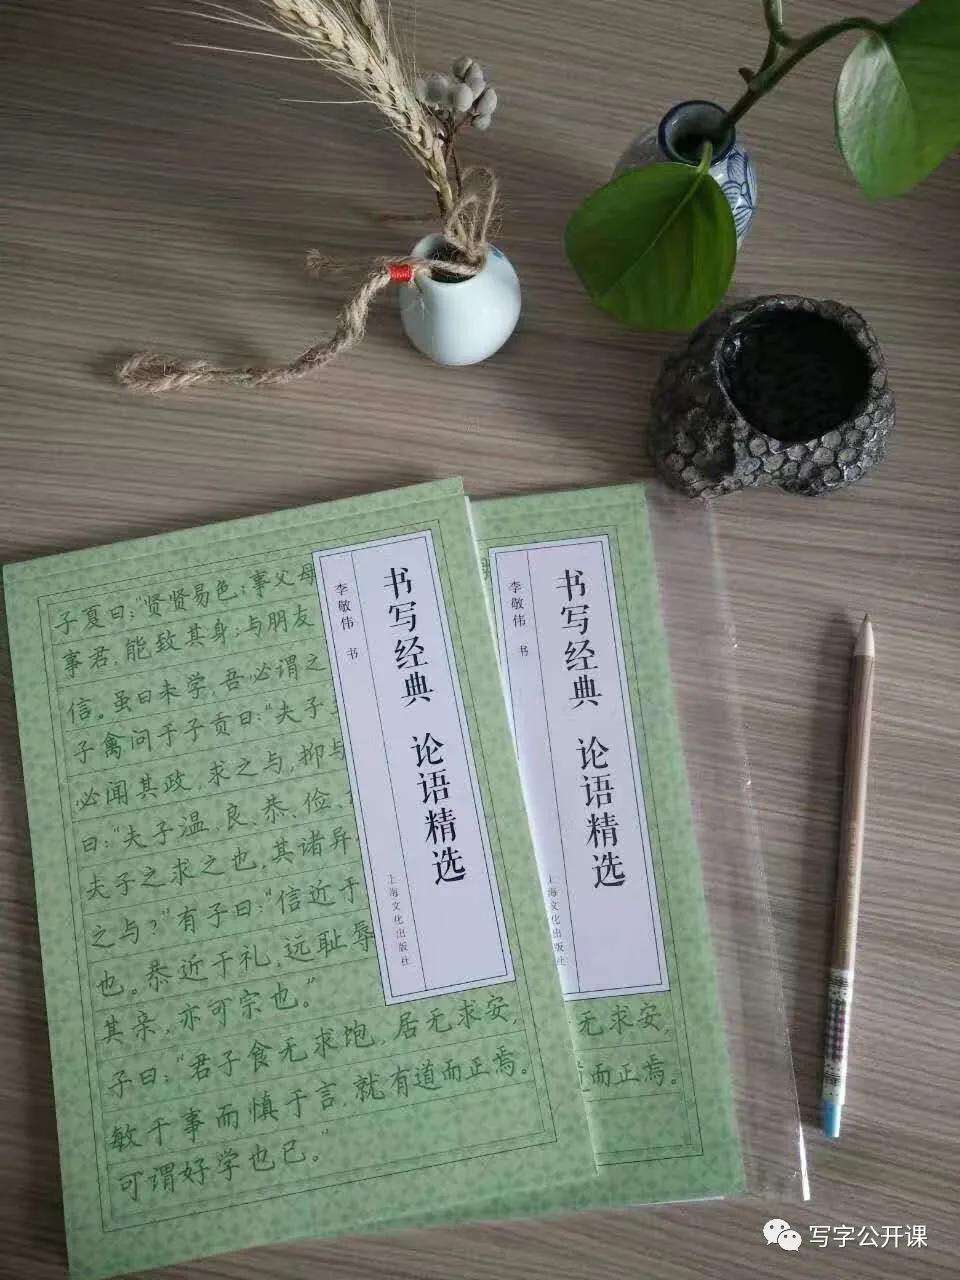 书写经典 论语精选
李敬伟 书
上海文化出版社
子夏曰：“贤贤易色；事父母
事君，能致其身；与朋友
信。虽曰未学，吾必谓之
子禽问于子贡曰：“夫子
必闻其政，求之与，抑与
曰：“夫子温、良、恭、俭、
夫子之求之也，其诸异
之与？”有子曰：“信近于
也。恭近于礼，远耻辱
其亲，亦可宗也。”
子曰：“君子食无求饱，居无求安，
敏于事而慎于言，就有道而正焉。
可谓好学也已。”
书写经典 论语精选
李敬伟 书
上海文化出版社
无求安，
而正焉。
写字公开课